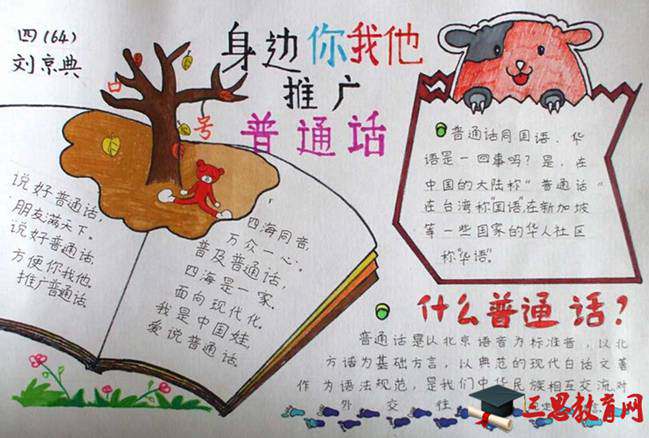 四(64)
刘京典
身边你我他
推广
普通话
口
号
说好普通话，
朋友满天下。
说好普通话
方便你我他。
推广普通话
四海同音，
万众一心。
普及普通话，
四海是一家，
面向现代化。
我是中国娃，
爱说普通话。
普通话同国语、华
语是一回事吗？是，在
中国的大陆称“普通话”
在台湾称“国语”，在新加坡
等一些国家的华人社区
称“华语”。
什么普通话？
普通话是以北京语音为标准音，以北
方话为基础方言，以典范的现代白话文著
作为语法规范，是我们中华民族相互交流、对
外交往
三思教育网